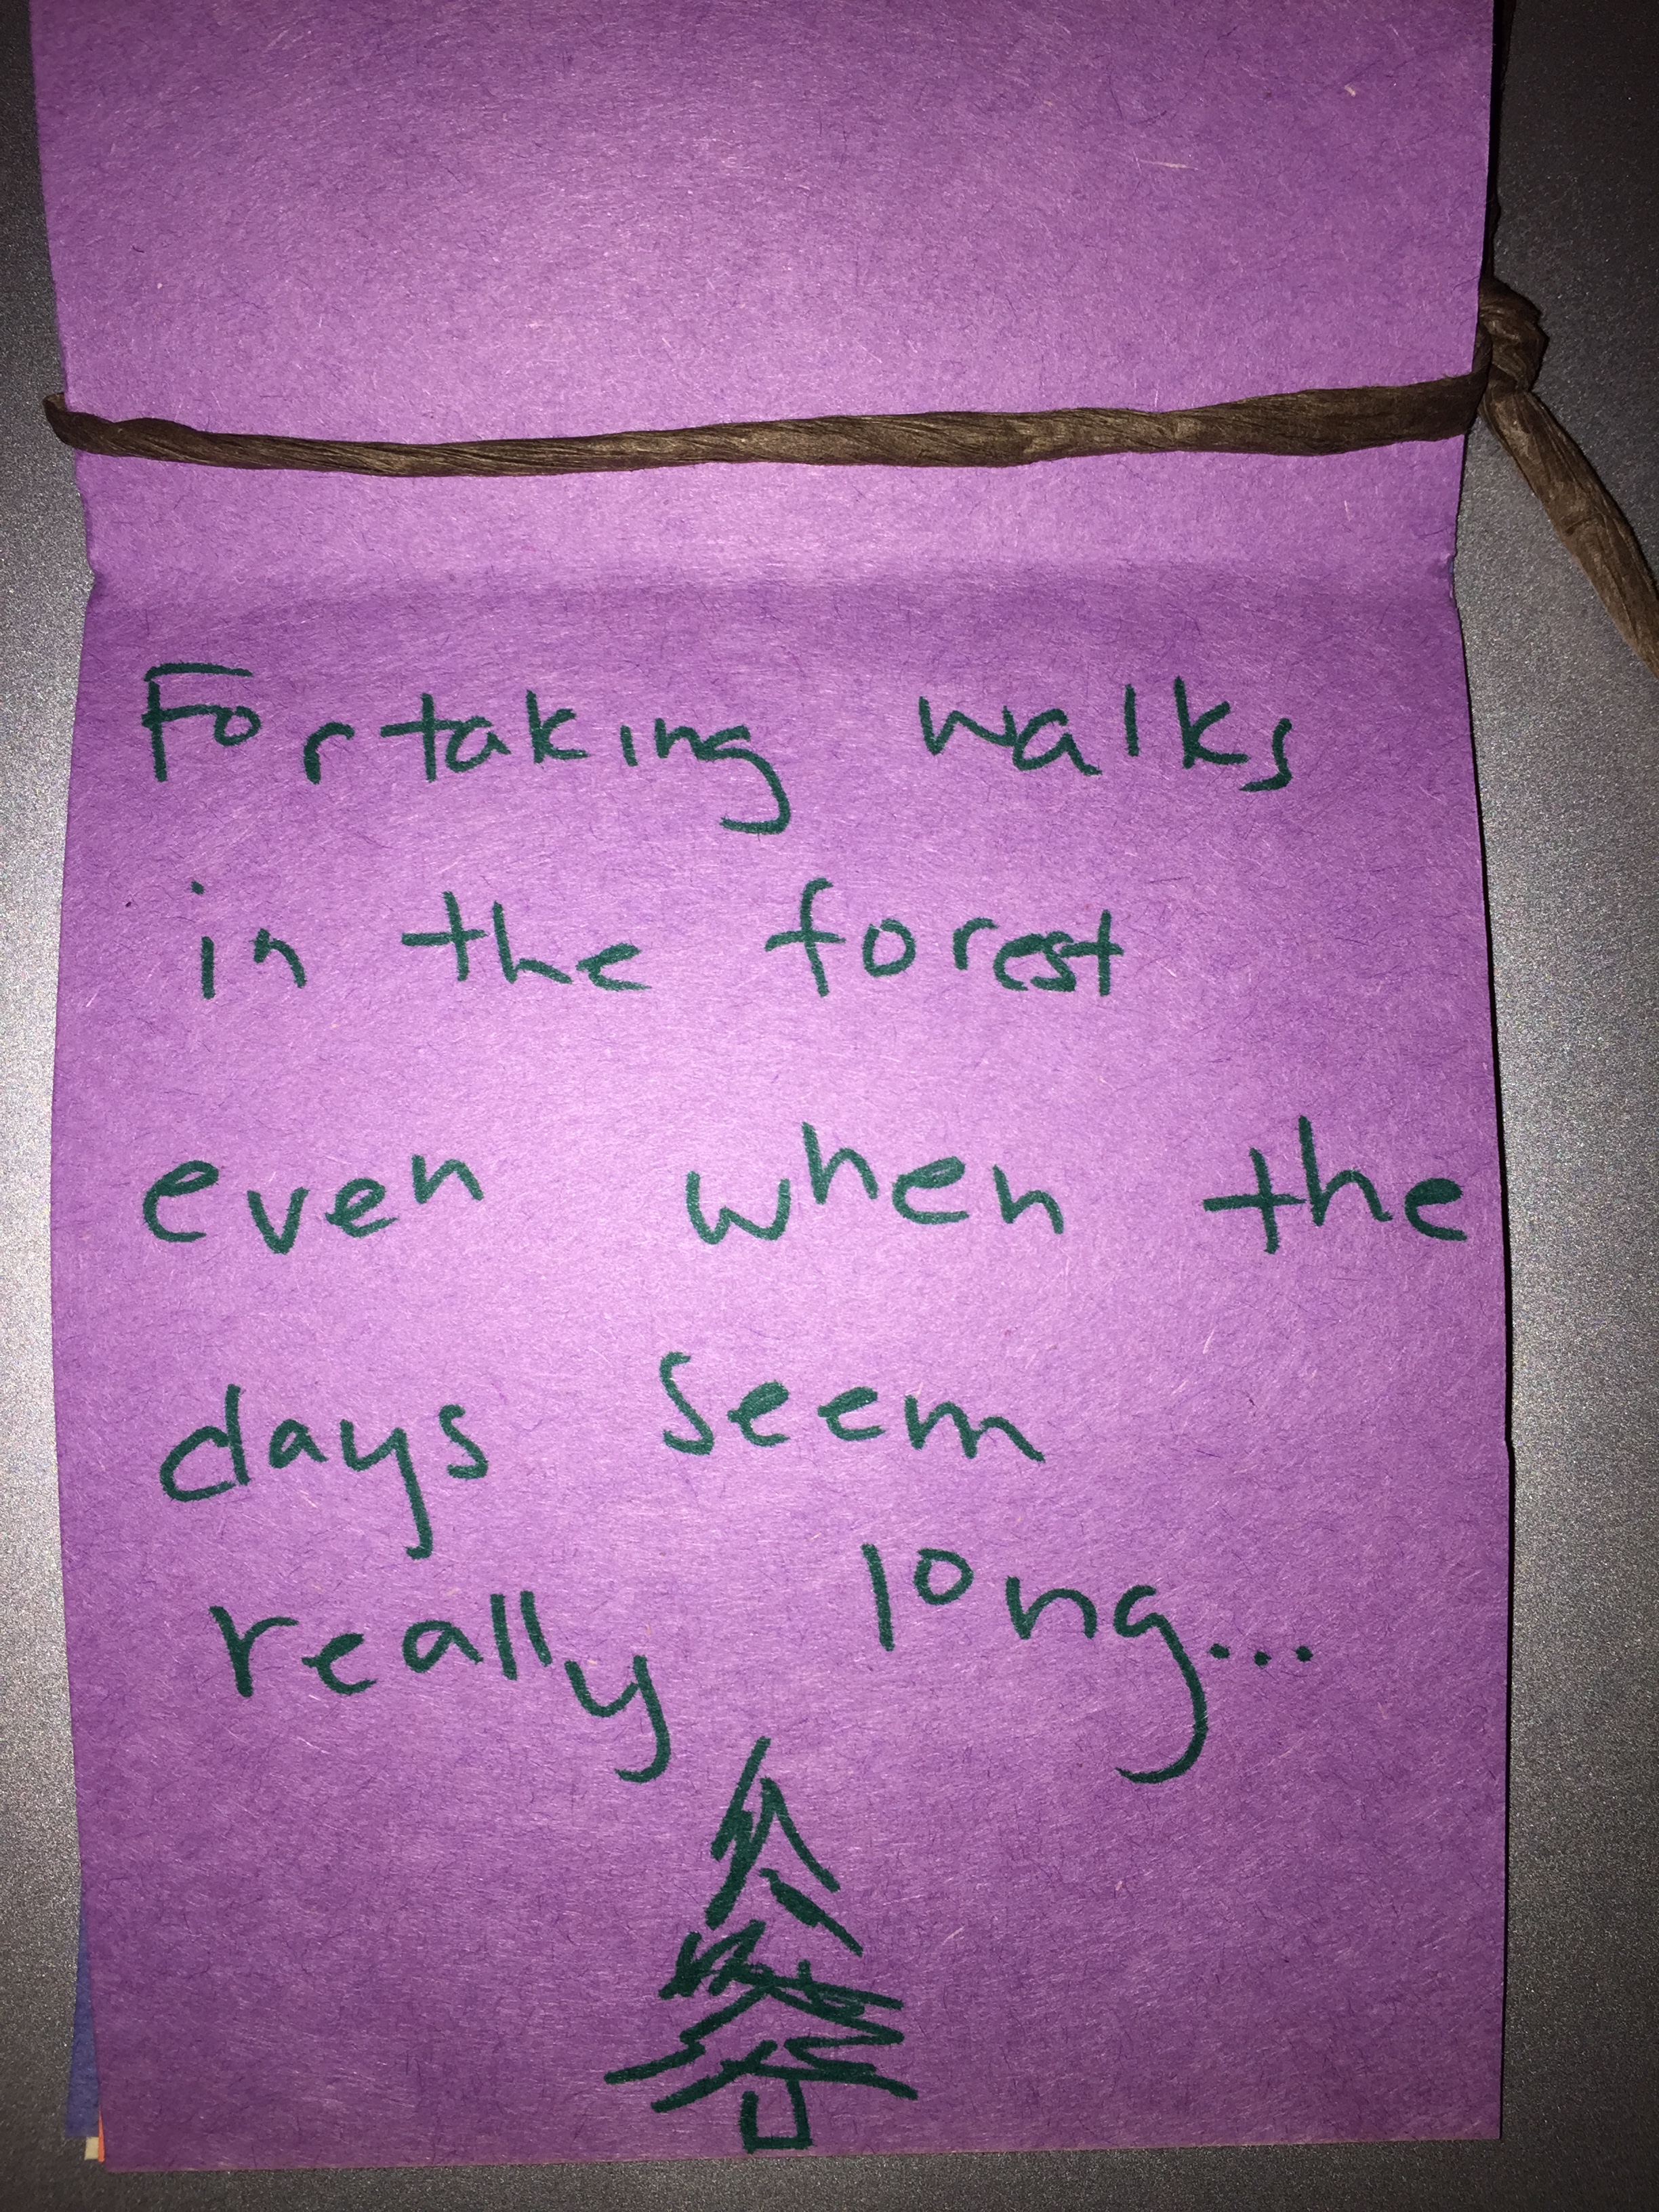 For taking walks
in the forest
even when the
days seem
really long...